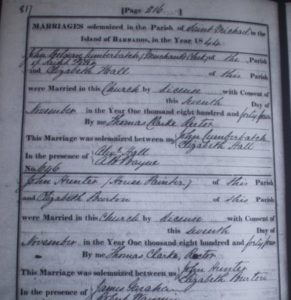 817
[Page 216.]
MARRIAGES solemnized in the Parish of Saint Michael in the
Island of BARBADOS, in the Year 1844
John Cumberbatch, Merchants Clerk of the Parish
of
and Elizabeth Hall of this Parish
were Married in this Church by license with Consent of
this seventh Day of
November in the Year One thousand eight hundred and forty four
By me Thomas Clarke, Rector
This Marriage was solemnized between us John Cumberbatch
Elizabeth Hall
In the presence of Hall
Wayne
No. 646
John Hunter (House Painter) of this Parish
and Elizabeth Burton of this Parish
were Married in this Church by license with Consent of
this seventh Day of
November in the Year One thousand eight hundred and forty four
By me Thomas Clarke, Rector
This Marriage was solemnized between us John Hunter
Elizabeth Burton
In the presence of James